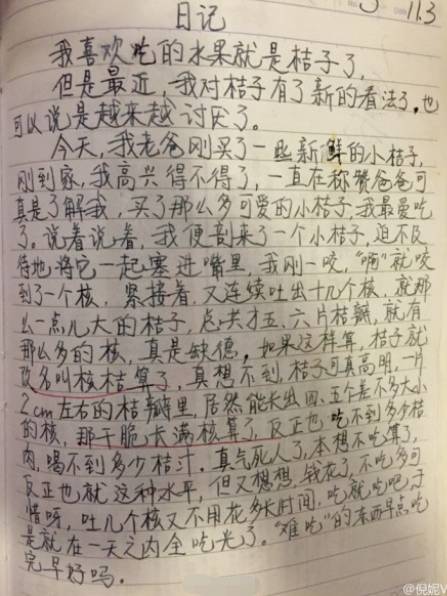 11.3
日记
我喜欢吃的水果就是桔子了,
但是最近,我对桔子有了新的看法了,也
可以说是越来越讨厌了。
今天,我老爸刚买了一些新鲜的小桔子,
刚到家,我高兴得不得了,一直在称赞爸爸可
真是了解我,买了那么多可爱的小桔子,我最爱吃
了。说着说着,我便剖来了一个小桔子,迫不及
待地将它一起塞进嘴里,我刚一咬,“啊”就咬
到了一个核,紧接着,又连续吐出十几个核,就那
么一点儿大的桔子,总共才五、六片桔瓣,就有
那么多的核,真是缺德,如果这样算,桔子就
改名叫核桔算了,真想不到,桔子可真高明,一片
2cm左右的桔瓣里,居然能长出四、五个差不多大小
的核,那干脆长满核算了,反正也吃不到多少桔
肉,喝不到多少桔汁,真气死人了,本想不吃算了,
反正也就这种水平,但又想想,钱花了,不吃多可
惜呀,吐几个核又不用花多长时间,吃就吃吧,于
是就在一天之内全吃光了。“难吃”的东西早点吃
完早好吗。
@倪妮V